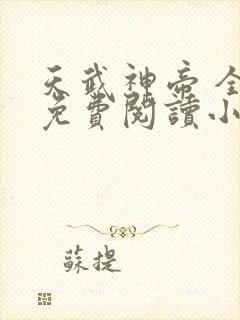 天武神帝全
免費閱讀小
蘇提